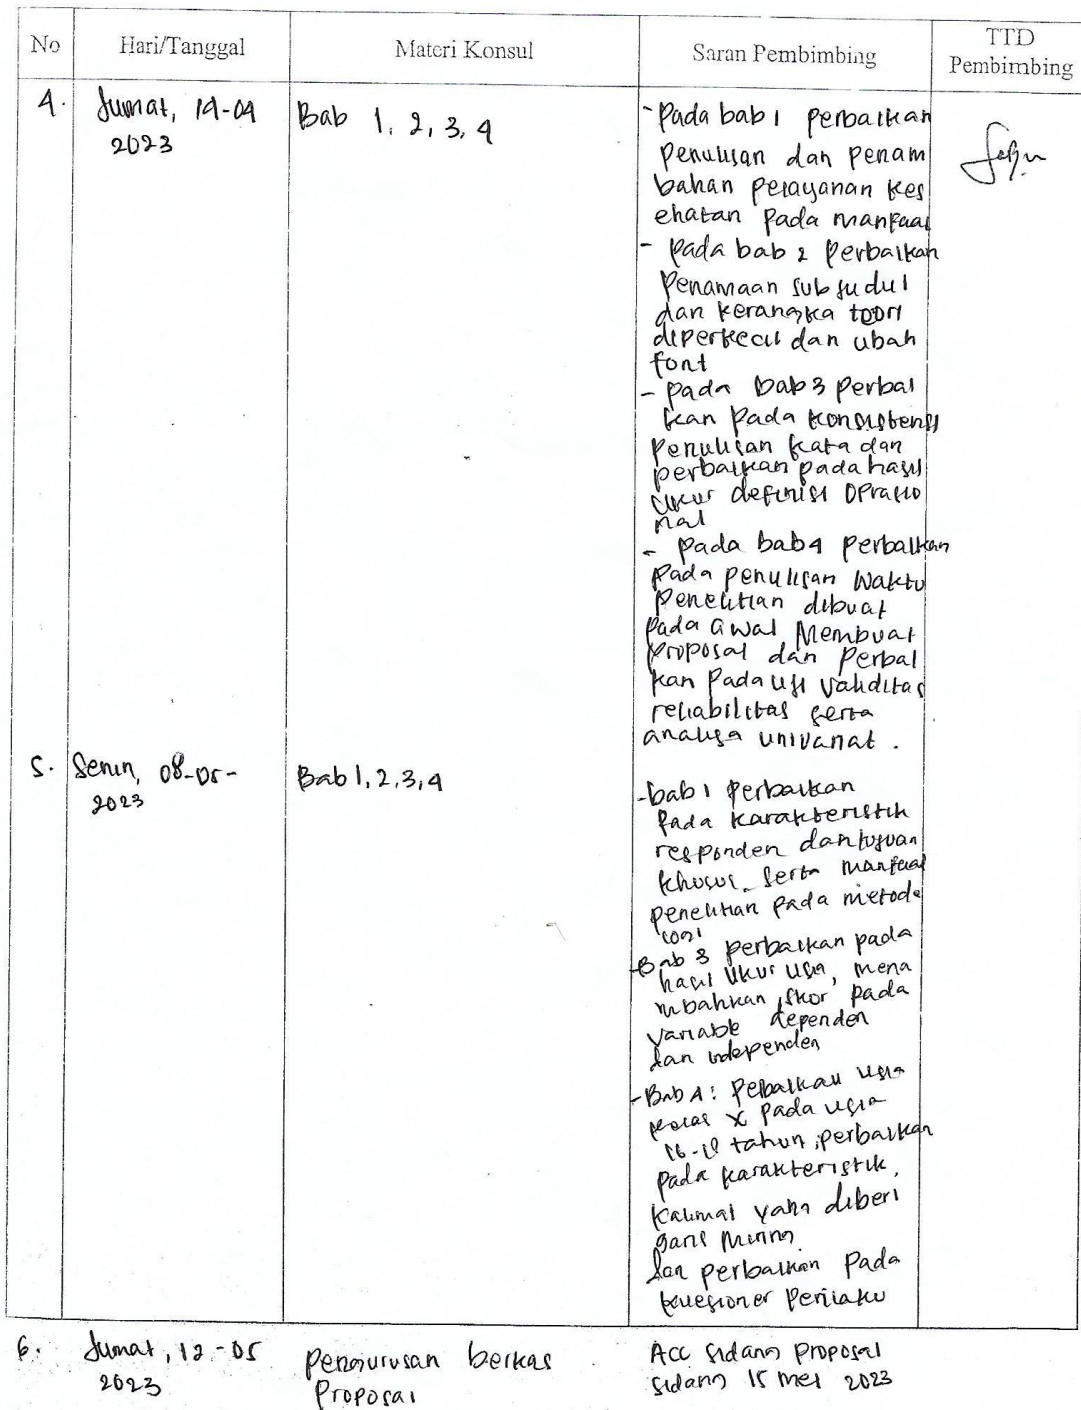 No
Hari/Tanggal
Materi Konsul
Saran Pembimbing
TTD
Pembimbing
4.
Jumat, 14-04
2023
Bab 1, 2, 3, 4
- Pada bab 1 perbaikan
penulisan dan penam
bahan pelayanan kes
ehatan pada manfaat
- Pada bab 2 perbaikan
Penamaan sub judul
dan kerangka teori
diperkecil dan ubah
font
- pada bab 3 perbai
kan pada konsistensi
penulisan kata dan
perbaikan pada hasil
ukur definisi Oprasio
nal
- pada bab 4 perbaikan
pada penulisan waktu
penelitian dibuat
pada awal Membuat
proposal dan perbai
kan pada uji validitas
reliabilitas serta
analisa univariat.
5.
Senin, 08-05-
2023
Bab 1, 2, 3, 4
- bab 1 perbaikan
pada karakteristik
responden dan tujuan
khusus serta manfaat
penelitian pada metode
- Bab 3 perbaikan pada
hasil ukur usia, mena
mbahkan skor pada
variable dependen
dan independen
- Bab 4: Perbaikan usia
kelas X pada usia
tahun, perbaikan
pada karakteristik,
kalimat yang diberi
garis miring
dan perbaikan pada
kuesioner Perilaku
6.
Jumat, 12-05
2023
Pengurusan berkas
Proposal
Acc sidang proposal
sidang 15 mei 2023